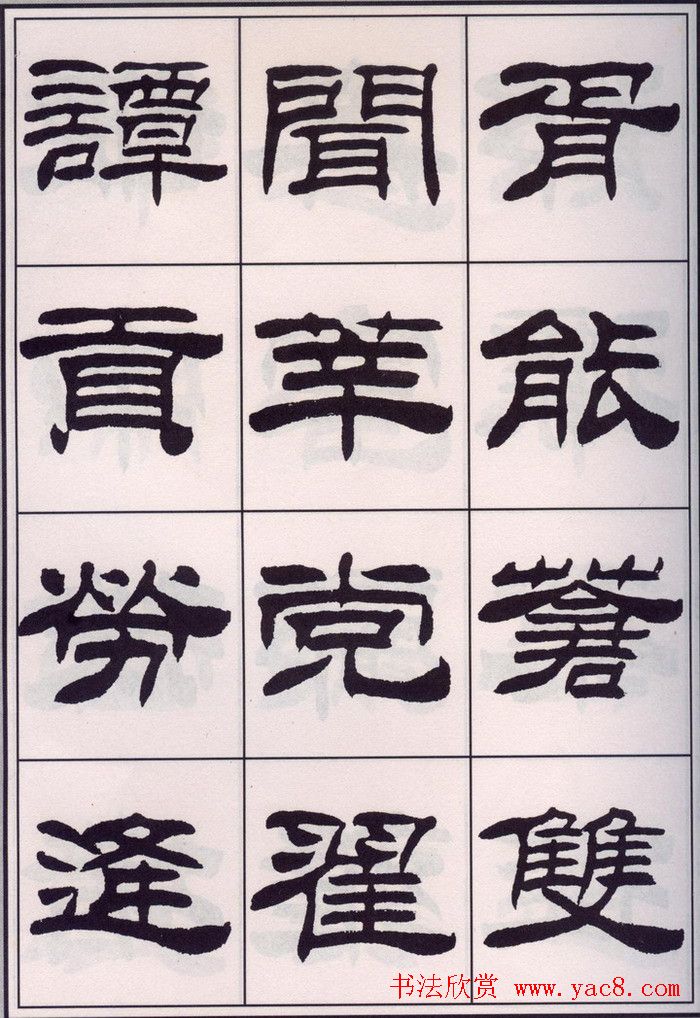 胥能蒼雙
聞莘党翟
譚貢勞逄
书法欣赏 www.yac8.com